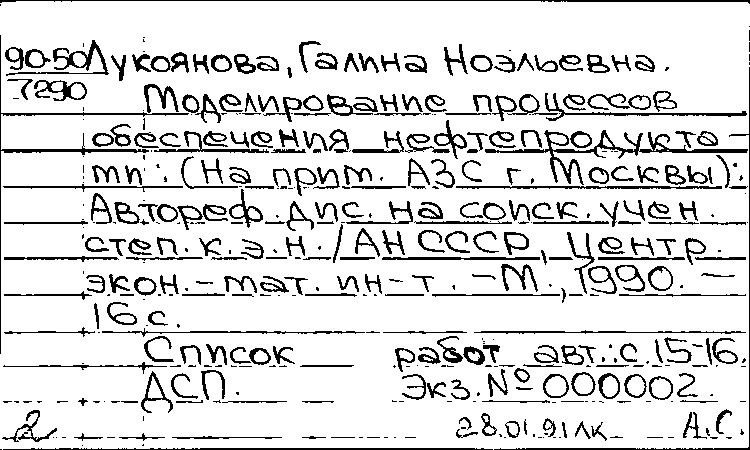 90-50 Лукоянова, Галина Ноэльевна.
7290 Моделирование процессов
обеспечения нефтепродукта-
ми : (На прим. АЗС г. Москвы):
Автореф. дис. на соиск. учен.
степ. к. э. н. / АН СССР, Центр.
экон.-мат. ин-т. - М., 1990. -
16 с.
Список работ авт.: с. 15-16.
ДСП. Экз. № 000002.
2 28.01.91 ЛК А.С.